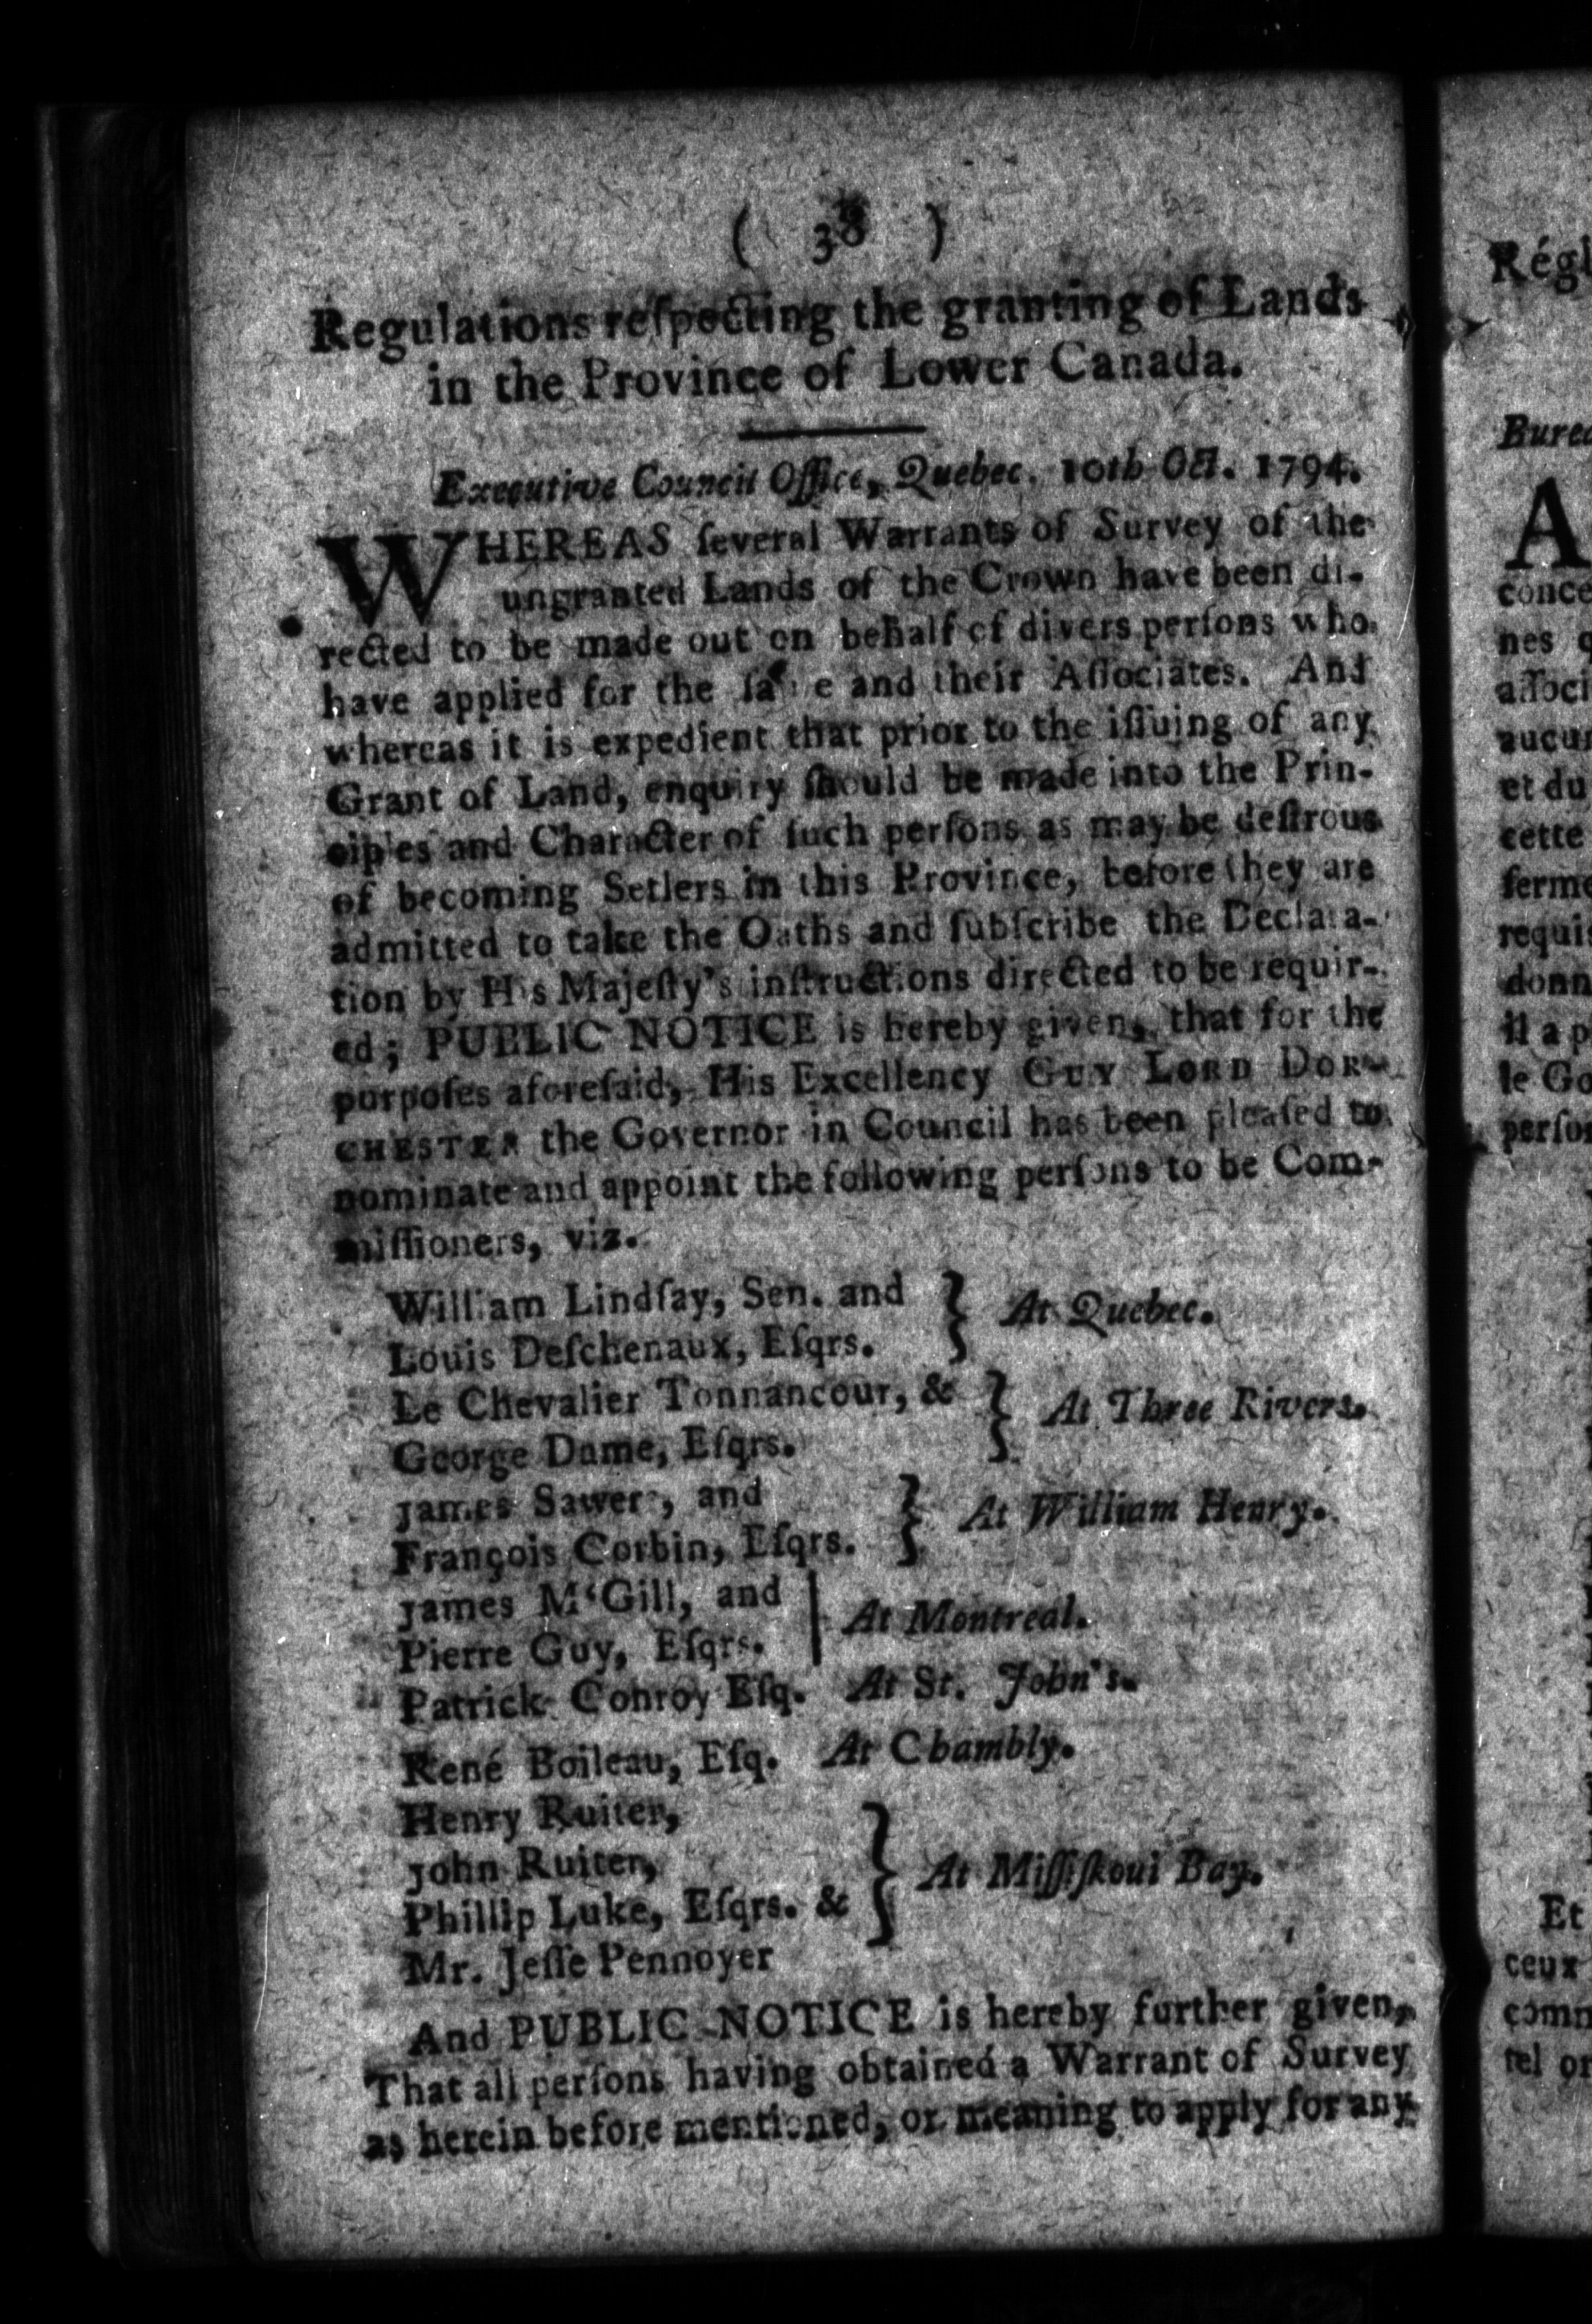 ( 38 )
Regulations reſpecting the granting of Lands
in the Province of Lower Canada.
Executive Council Office, Quebec. 10th Oct. 1794.
WHEREAS ſeveral Warrants of Survey of the
ungranted Lands of the Crown have been di-
rected to be made out on behalf of divers perſons who
have applied for the ſame and their Aſſociates. And
whereas it is expedient that prior to the iſſuing of any
Grant of Land, enquiry ſhould be made into the Prin-
ciples and Character of ſuch perſons as may be deſirous
of becoming Setlers in this Province, before they are
admitted to take the Oaths and ſubſcribe the Declara-
tion by His Majeſty's inſtructions directed to be requir-
ed; PUBLIC NOTICE is hereby given, that for the
purpoſes aforeſaid, His Excellency GUY LORD DOR-
CHESTER the Governor in Council has been pleaſed to
nominate and appoint the following perſons to be Com-
miſſioners, viz.
William Lindſay, Sen. and
Louis Deſchenaux, Eſqrs. } At Quebec.
Le Chevalier Tonnancour, &
George Dame, Eſqrs. } At Three Rivers.
James Sawers, and
François Corbin, Eſqrs. } At William Henry.
James M‘Gill, and
Pierre Guy, Eſqrs. | At Montreal.
Patrick Conroy Eſq. At St. John's.
René Boileau, Eſq. At Chambly.
Henry Ruiter,
John Ruiter,
Phillip Luke, Eſqrs. & } At Miſſiſkoui Bay.
Mr. Jeſſe Pennoyer
And PUBLIC NOTICE is hereby further given,
That all perſons having obtained a Warrant of Survey
as herein before mentioned, or meaning to apply for any
Régl
Bure
A
conce
nes
aſſoci
aucun
et du
cette
ferme
requis
donn
il a p
le Go
perſo
Et
ceux
comm
tel or